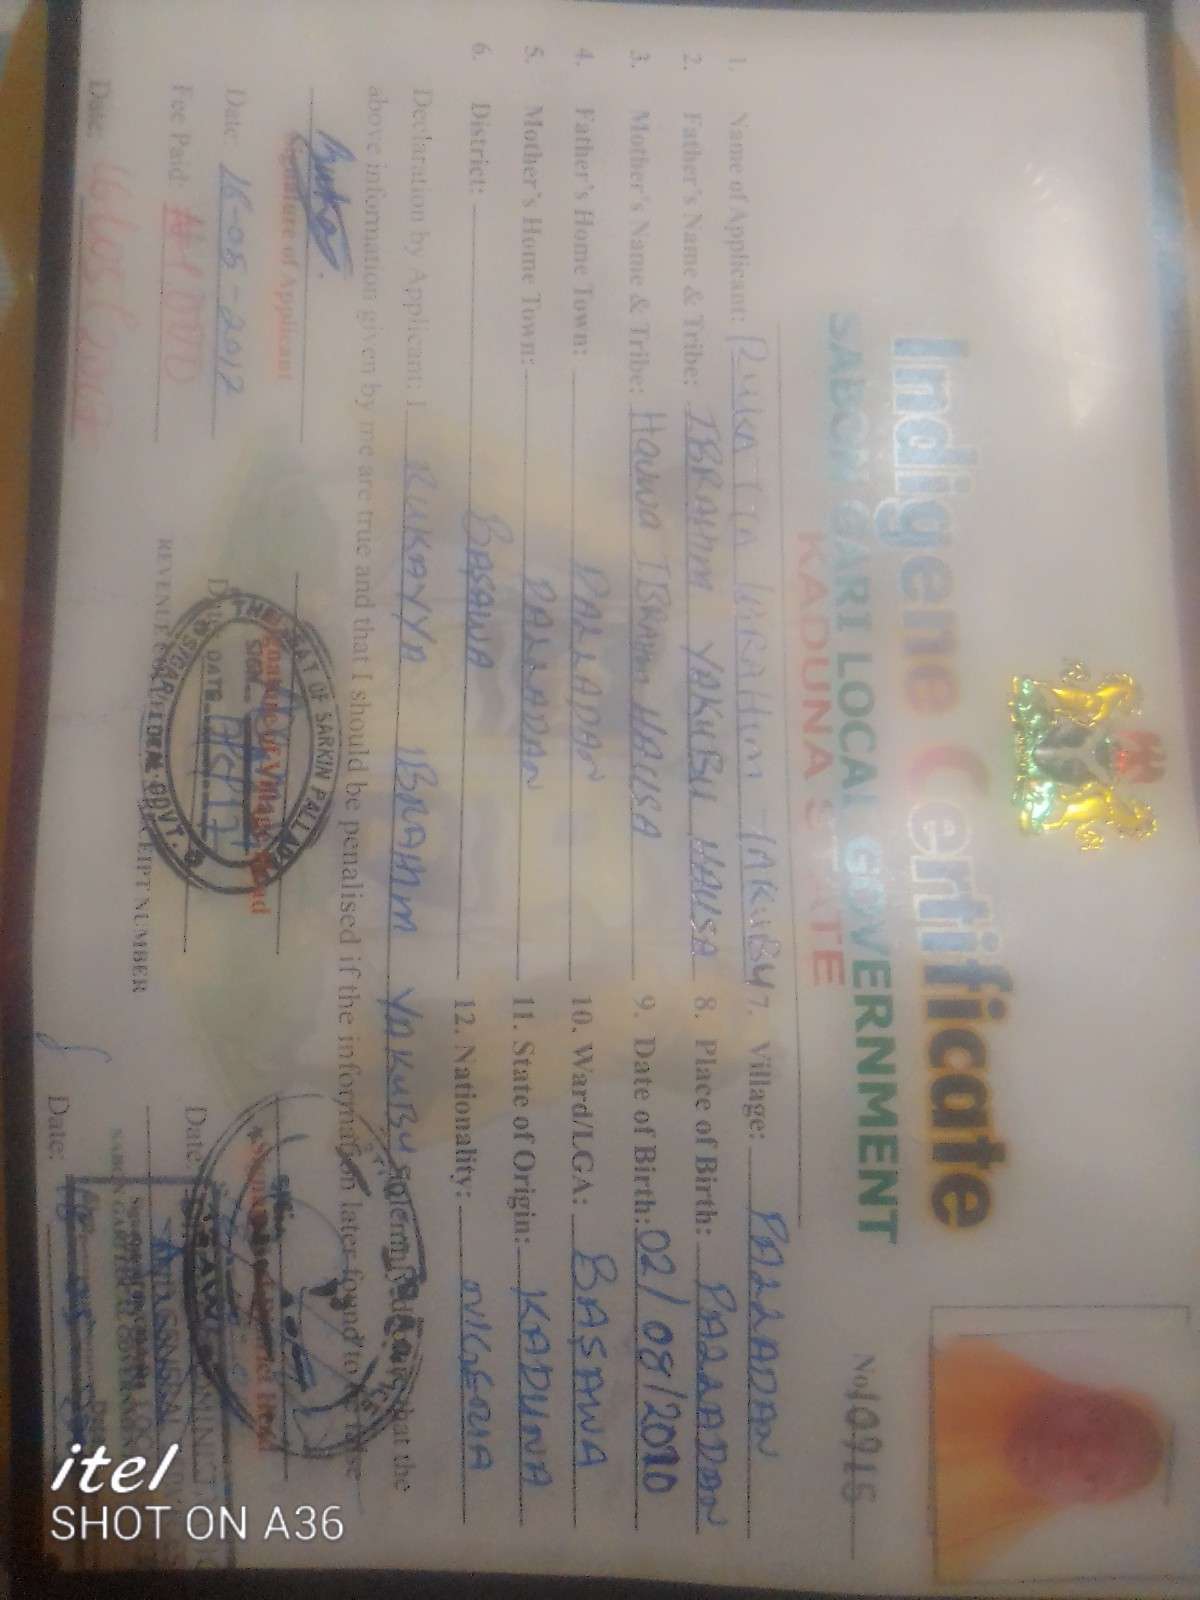 Indigene Certificate
SABON GARI LOCAL GOVERNMENT
KADUNA STATE
No
1. Name of Applicant: IBRAHIM YAKUBU
2. Father's Name & Tribe: IBRAHIM YAKUBU HAUSA
3. Mother's Name & Tribe: HAUWA IBRAHIM HAUSA
4. Father's Home Town: PALLADAN
5. Mother's Home Town: PALLADAN
6. District: BASAWA
7. Village: PALLADAN
8. Place of Birth: PALLADAN
9. Date of Birth: 02/08/2010
10. Ward/LGA: BASAWA
11. State of Origin: KADUNA
12. Nationality: NIGERIA
Declaration by Applicant: I RUKAYYA IBRAHIM YAKUBU solemnly declare that the
above information given by me are true and that I should be penalised if the information later found to be false
Signature of Applicant
Date: 16-05-2017
Fee Paid:
Date: 16/05/2017
Signature of Village Head
THE SEAT OF SARKIN PALLADAN
SIGN
DATE
REVENUE COLLECTOR RECEIPT NUMBER
Date:
Date:
itel
SHOT ON A36